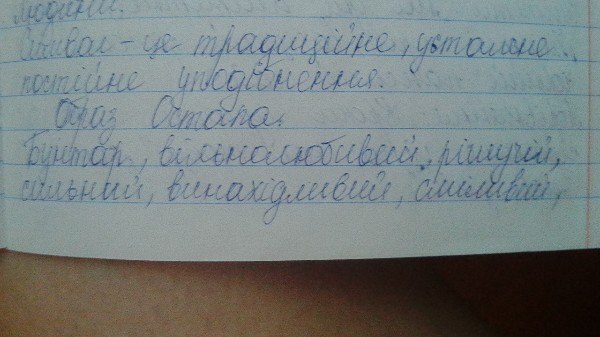 людини.
Символ - це традиційне, усталене,
постійне уподібнення.
Образ Остапа.
Бунтар, вільналюбивий, рішучій,
сильний, винахідливий, сміливий,